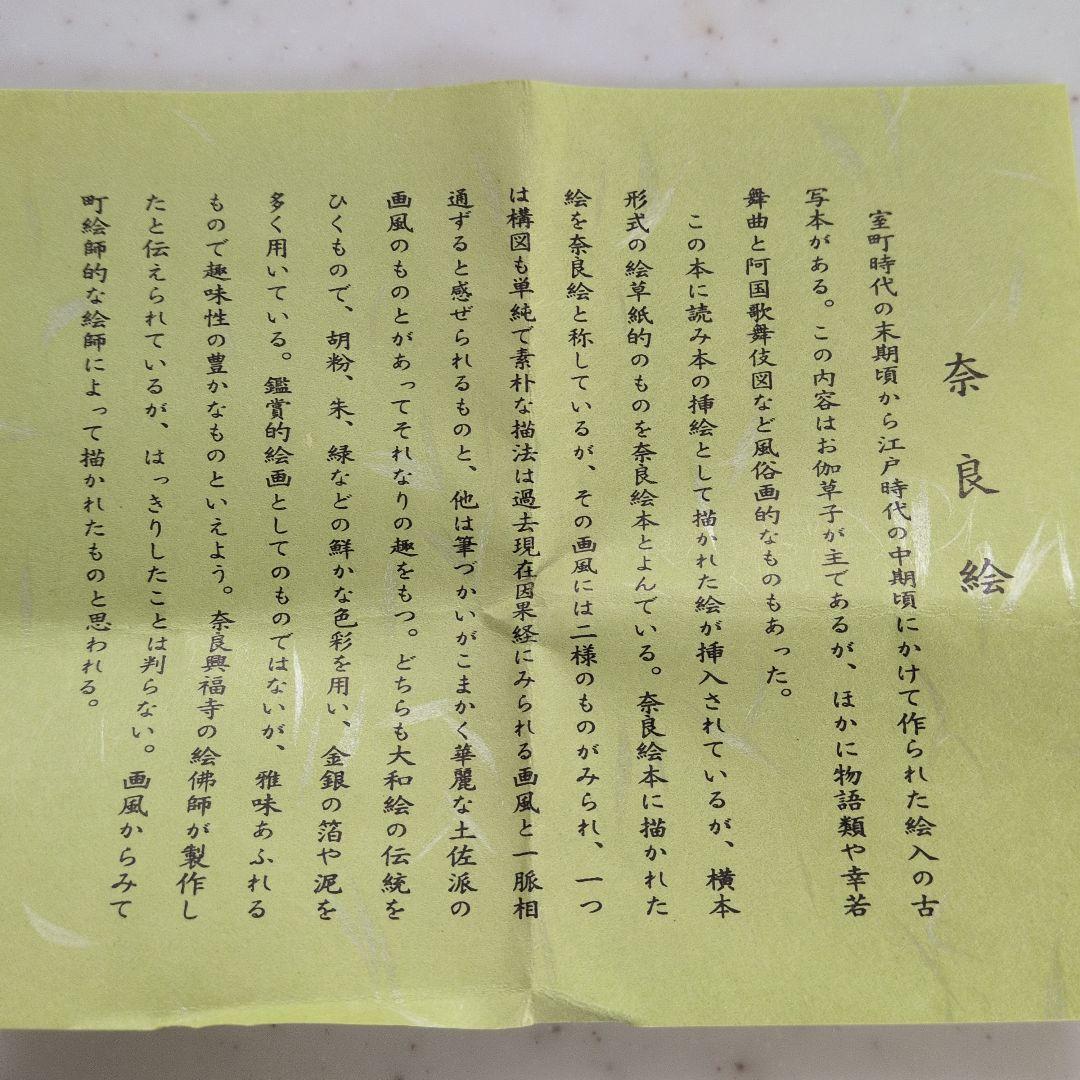 奈良絵
室町時代の末期頃から江戸時代の中期頃にかけて作られた絵入の古
写本がある。この内容はお伽草子が主であるが、ほかに物語類や幸若
舞曲と阿国歌舞伎図など風俗画的なものもあった。
この本に読み本の挿絵として描かれた絵が挿入されているが、横本
形式の絵草紙的のものを奈良絵本とよんでいる。奈良絵本に描かれた
絵を奈良絵と称しているが、その画風には二様のものがみられ、一つ
は構図も単純で素朴な描法は過去現在因果経にみられる画風と一脈相
通ずると感ぜられるものと、他は筆づかいがこまかく華麗な土佐派の
画風のものとがあってそれなりの趣をもつ。どちらも大和絵の伝統を
ひくもので、胡粉、朱、緑などの鮮かな色彩を用い、金銀の箔や泥を
多く用いている。鑑賞的絵画としてのものではないが、雅味あふれる
もので趣味性の豊かなものといえよう。奈良興福寺の絵佛師が製作し
たと伝えられているが、はっきりしたことは判らない。画風からみて
町絵師的な絵師によって描かれたものと思われる。